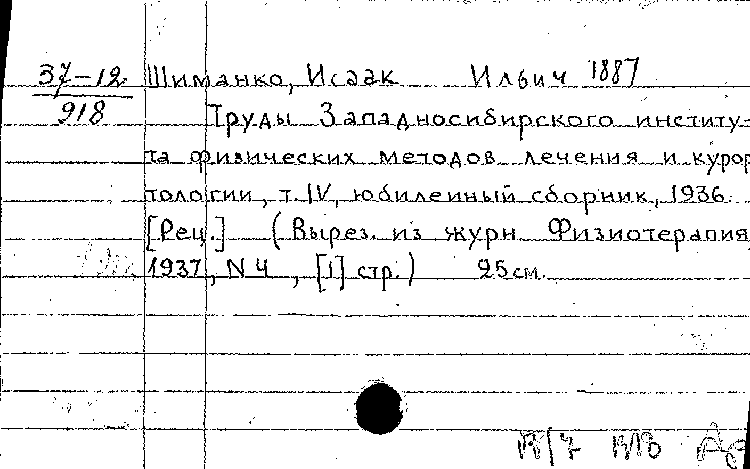 37-12 Шиманко, Исаак Ильич 1887
918 Труды Западносибирского институ-
та физических методов лечения и курор
тологии, т. IV, юбилейный сборник, 1936.
[Рец.] (Вырез. из журн Физиотерапия,
1937, N 4, [1] стр.) 25 см.